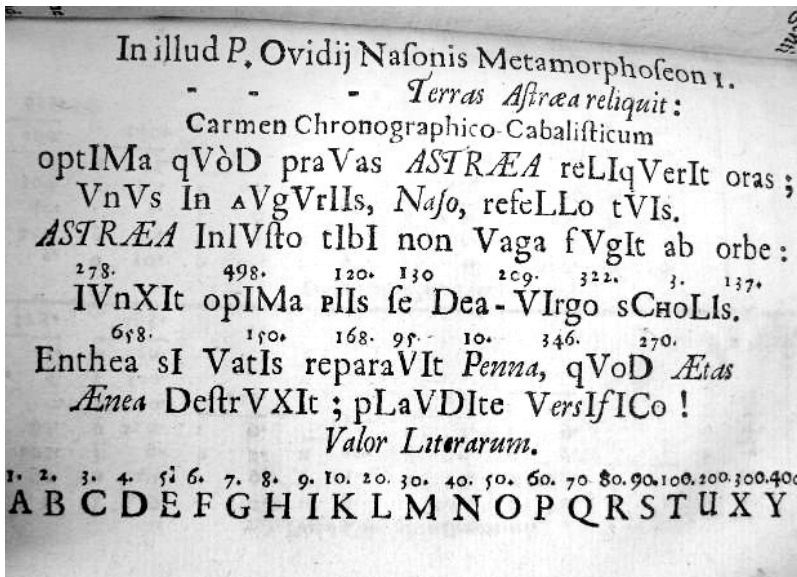 In illud P. Ovidij Naſonis Metamorphoſeon 1.
- - - Terras Aſtræa reliquit:
Carmen Chronographico-Cabaliſticum
optIMa qVòD praVas ASTRÆA reLIqVerIt oras;
VnVs In AVgVrIIs, Naſo, refeLLo tVIs.
ASTRÆA InIVſto tIbI non Vaga fVgIt ab orbe:
278. 498. 120. 130 209. 322. 3. 137.
IVnXIt opIMa PIIs ſe Dea-VIrgo sCHoLIs.
658. 150. 168. 95. 10. 346. 270.
Enthea sI VatIs reparaVIt Penna, qVoD Ætas
Ænea DeſtrVXIt; pLaVDIte VersIfICo!
Valor Literarum.
1. 2. 3. 4. 5. 6. 7. 8. 9. 10. 20. 30. 40. 50. 60. 70 80. 90. 100. 200. 300. 400
A B C D E F G H I K L M N O P Q R S T U X Y